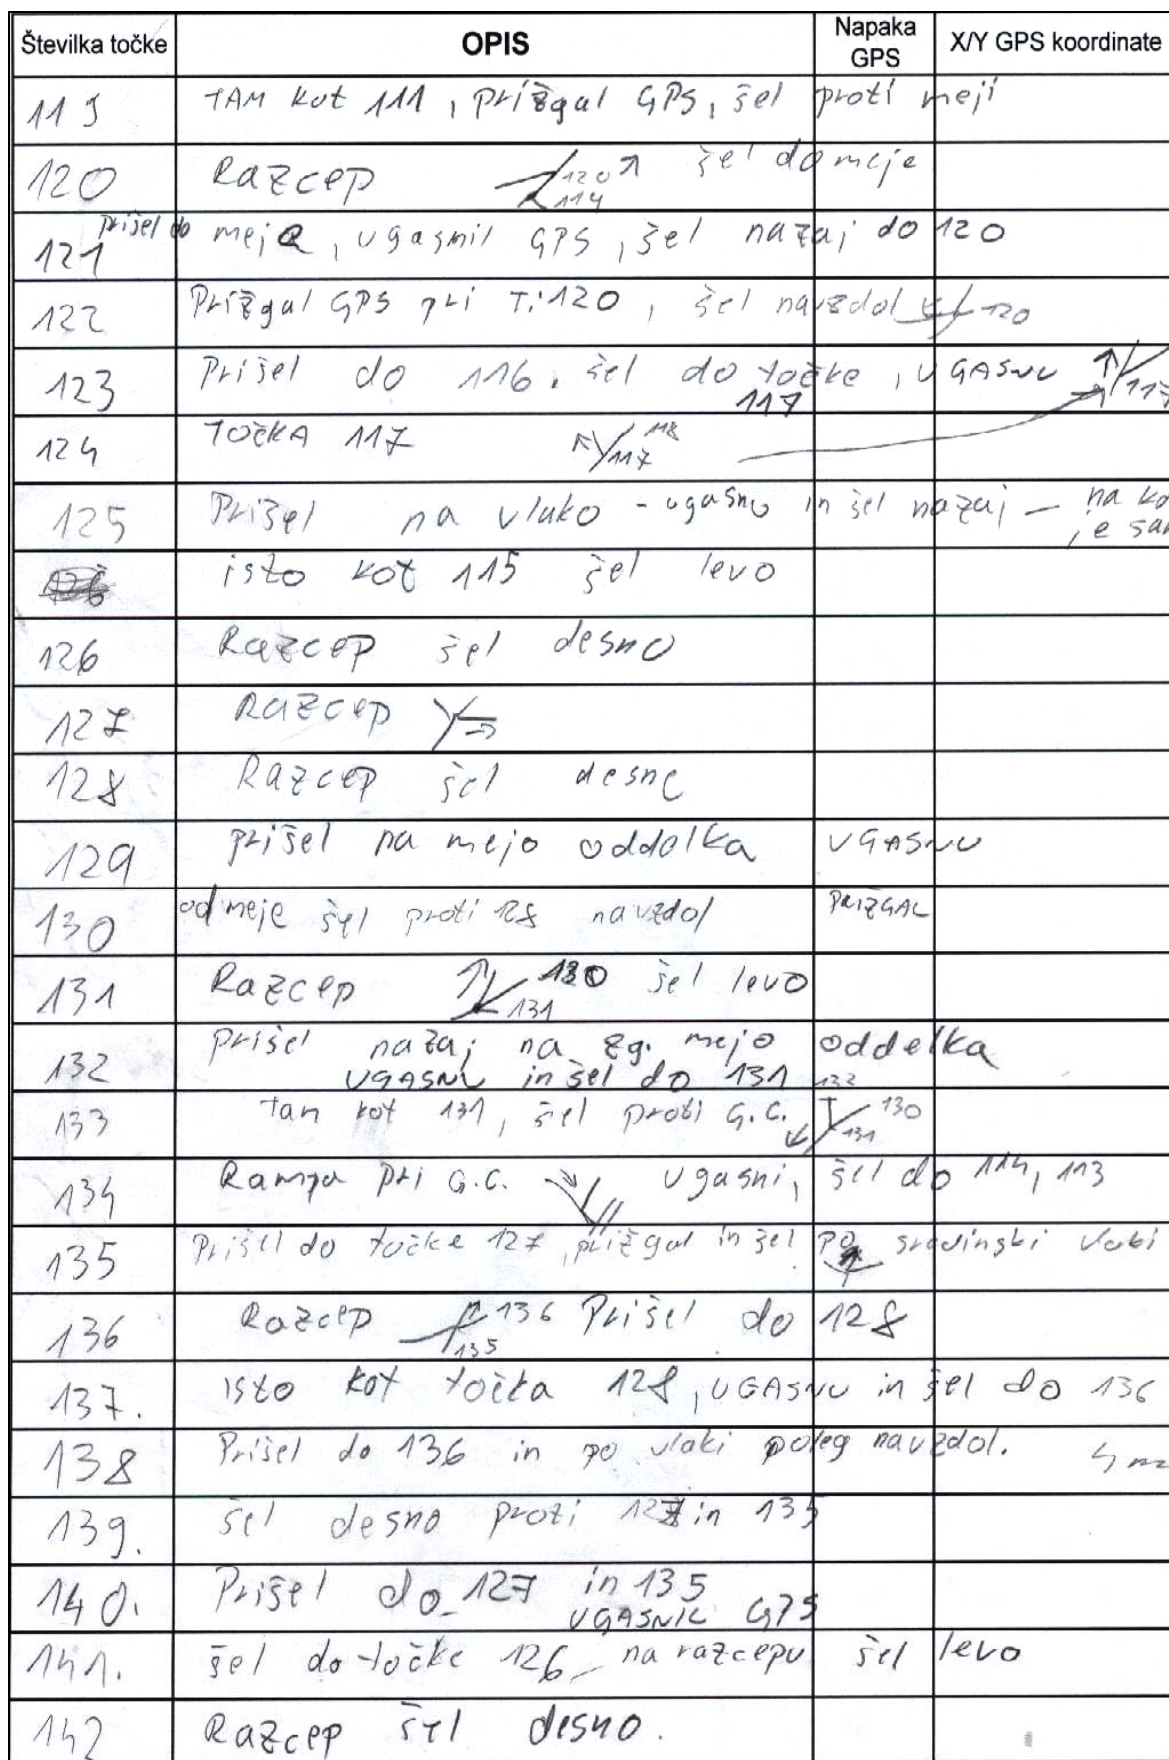 Številka točke OPIS Napaka GPS X/Y GPS koordinate
119 TAM kot 111, prižgal GPS, šel proti meji
120 Razcep 120 114 šel do meje
121 Prišel do meje, ugasnil GPS, šel nazaj do 120
122 Prižgal GPS pri T.120, šel navzdol 120
123 Prišel do 116. šel do točke 117, UGASNU 117
124 TOČKA 117 118 117
125 Prišel na vlako - ugasnu in šel nazaj - na
je
isto kot 115 šel levo
126 Razcep šel desno
127 Razcep
128 Razcep šel desno
129 prišel na mejo oddelka UGASNU
130 od meje šel proti 128 navzdol PRIŽGAL
131 Razcep 130 131 šel levo
132 prišel nazaj na zg. mejo oddelka
UGASNU in šel do 131
133 Tam kot 131, šel proti G.C. 132 130 131
134 Rampa pri G.C. ugasni, šel do 114, 113
135 Prišel do točke 127, prižgal in šel po sredinski vlaki
136 Razcep 136 135 Prišel do 128
137. isto kot točka 128, UGASNU in šel do 136
138 Prišel do 136 in po vlaki poleg navzdol.
139. šel desno proti 127 in 135
140. Prišel do 127 in 135
UGASNIL GPS
141. šel do točke 126 na razcepu šel levo
142 Razcep šel desno.